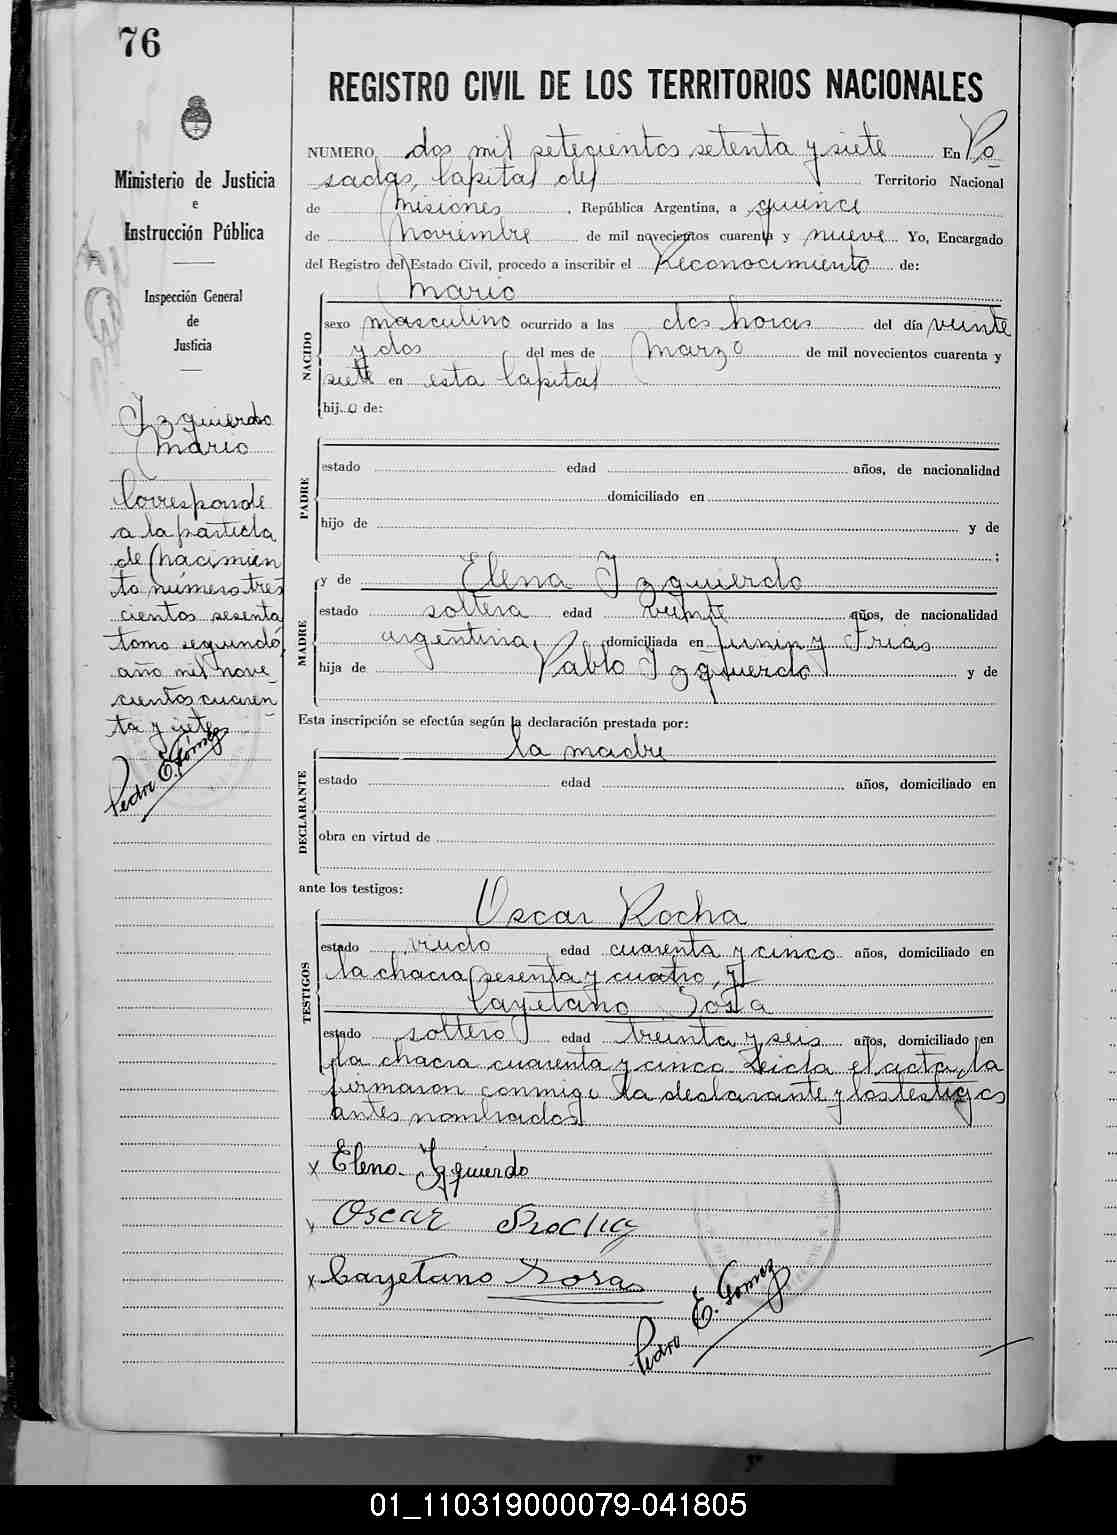 76
REGISTRO CIVIL DE LOS TERRITORIOS NACIONALES
Ministerio de Justicia
e
Instrucción Pública
Inspección General
de
Justicia
Izquierdo
Mario
Corresponde
a la partida
de nacimien
to número tres
cientos sesenta
tomo segundo,
año mil nove-
cientos cuaren
ta y siete
Pedro E. Gómez
NUMERO dos mil setecientos setenta y siete En Po
sadas, Capital del Territorio Nacional
de Misiones, República Argentina, a quince
de Noviembre de mil novecientos cuarenta y nueve Yo, Encargado
del Registro del Estado Civil, procedo a inscribir el Reconocimiento de:
NACIDO
Mario
sexo masculino ocurrido a las dos horas del día veinte
y dos del mes de Marzo de mil novecientos cuarenta y
siete en esta Capital
hijo de:
PADRE
estado edad años, de nacionalidad
domiciliado en
hijo de y de
;
MADRE
y de Elena Izquierdo
estado soltera edad veinte años, de nacionalidad
argentina, domiciliada en Junin y Frias
hija de Pablo Izquierdo y de
Esta inscripción se efectúa según la declaración prestada por:
DECLARANTE
la madre
estado edad años, domiciliado en
obra en virtud de
ante los testigos:
TESTIGOS
Oscar Rocha
estado viudo edad cuarenta y cinco años, domiciliado en
la chacra sesenta y cuatro, y
Cayetano Sosa
estado soltero edad treinta y seis años, domiciliado en
la chacra cuarenta y cinco Leida el acta, la
firmaron conmigo la declarante y los testigos
antes nombrados
x Elena Izquierdo
x Oscar Rocha
x Cayetano Sosa
Pedro E. Gomez
01_110319000079-041805